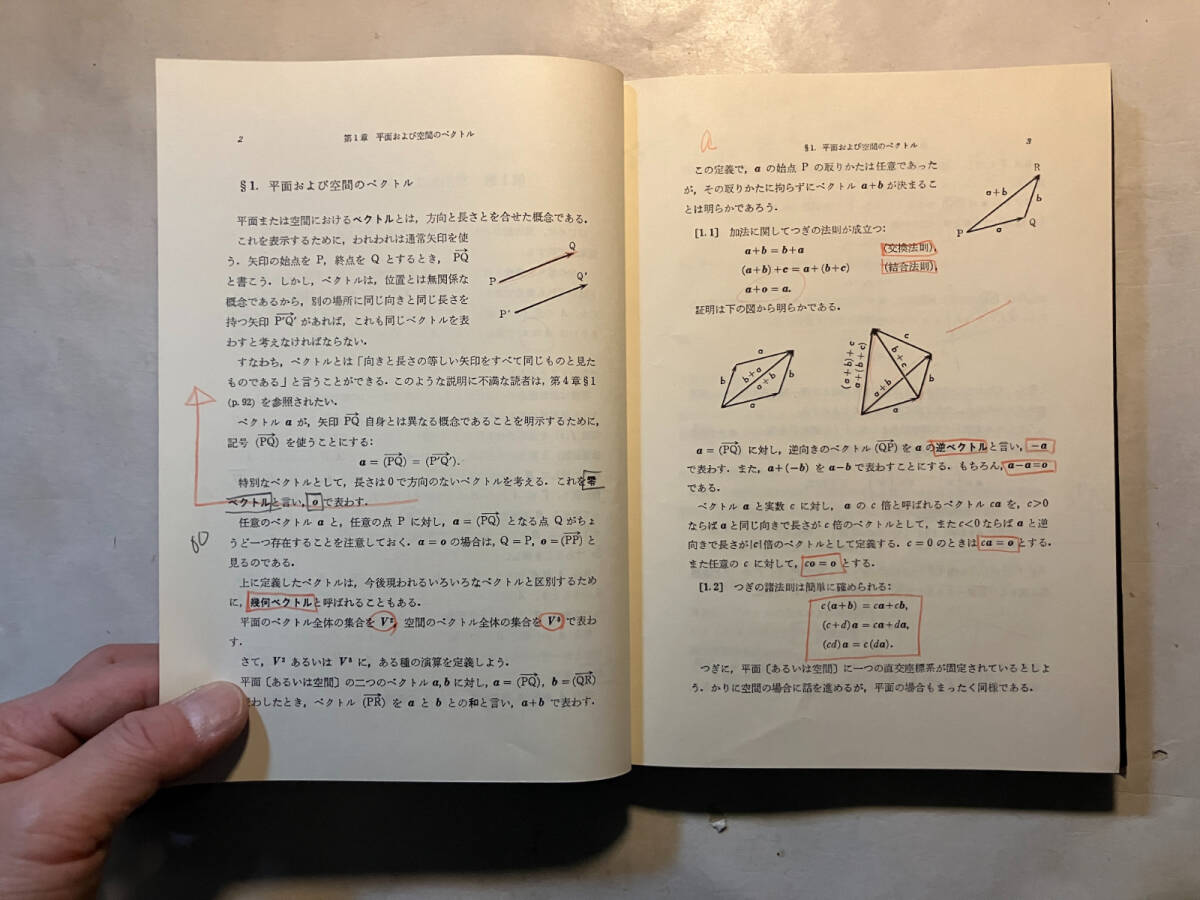 2
第1章 平面および空間のベクトル
§1. 平面および空間のベクトル
平面または空間におけるベクトルとは，方向と長さとを合せた概念である．
これを表示するために，われわれは通常矢印を使
う．矢印の始点を P，終点を Q とするとき，PQ→
と書こう．しかし，ベクトルは，位置とは無関係な
概念であるから，別の場所に同じ向きと同じ長さを
持つ矢印 P'Q'→ があれば，これも同じベクトルを表
わすと考えなければならない．
P
Q
P'
Q'
すなわち，ベクトルとは「向きと長さの等しい矢印をすべて同じものと見た
ものである」と言うことができる．このような説明に不満な読者は，第4章§1
(p. 92) を参照されたい．
ベクトル a が，矢印 PQ→ 自身とは異なる概念であることを明示するために，
記号 (PQ→) を使うことにする:
a = (PQ→) = (P'Q'→).
特別なベクトルとして，長さは0で方向のないベクトルを考える．これを零
ベクトルと言い，o で表わす．
任意のベクトル a と，任意の点 P に対し，a = (PQ→) となる点 Q がちょ
うど一つ存在することを注意しておく．a = o の場合は，Q = P, o = (PP→) と
見るのである．
上に定義したベクトルは，今後現われるいろいろなベクトルと区別するため
に，幾何ベクトルと呼ばれることもある．
平面のベクトル全体の集合を V²，空間のベクトル全体の集合を V³ で表わ
す．
さて，V² あるいは V³ に，ある種の演算を定義しよう．
平面〔あるいは空間〕の二つのベクトル a, b に対し，a = (PQ→), b = (QR→)
わしたとき，ベクトル (PR→) を a と b との和と言い，a+b で表わす．
a
§1. 平面および空間のベクトル
3
この定義で，a の始点 P の取りかたは任意であった
が，その取りかたに拘らずにベクトル a+b が決まるこ
とは明らかであろう．
R
a+b
b
P
a
Q
[1.1] 加法に関してつぎの法則が成立つ:
a+b = b+a (交換法則),
(a+b)+c = a+(b+c) (結合法則),
a+o = a.
証明は下の図から明らかである．
a
b
b+a
a+b
b
a
(a+b)+c
a+(b+c)
c
b+c
a+b
b
a
a = (PQ→) に対し，逆向きのベクトル (QP→) を a の逆ベクトルと言い，-a
で表わす．また，a+(-b) を a-b で表わすことにする．もちろん，a-a=o
である．
ベクトル a と実数 c に対し，a の c 倍と呼ばれるベクトル ca を，c>0
ならば a と同じ向きで長さが c 倍のベクトルとして，また c<0 ならば a と逆
向きで長さが |c| 倍のベクトルとして定義する．c=0 のときは ca = o とする．
また任意の c に対して，co = o とする．
[1.2] つぎの諸法則は簡単に確められる:
c(a+b) = ca+cb,
(c+d)a = ca+da,
(cd)a = c(da).
つぎに，平面〔あるいは空間〕に一つの直交座標系が固定されているとしよ
う．かりに空間の場合に話を進めるが，平面の場合もまったく同様である．